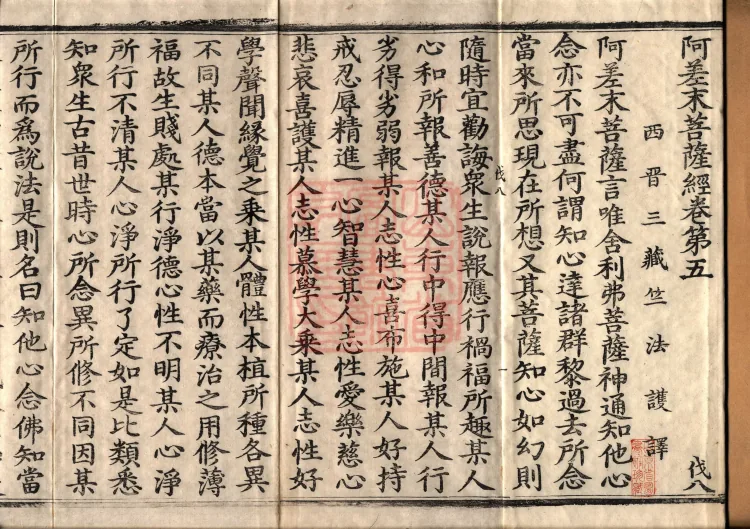 阿差末菩薩經卷第五
伐八
西晋三藏竺法護譯
阿差末菩薩言唯舍利弗菩薩神通知他心
念亦不可盡何謂知心達諸群黎過去所念
當來所思現在所想又其菩薩知心如幻則
伐八
隨時宜勸誨衆生說報應行禍福所趣某人
心和所報善德某人行中得中間報某人行
劣得劣弱報某人志性心喜布施某人好持
戒忍辱精進一心智慧某人志性愛樂慈心
悲哀喜護某人志性慕學大乘某人志性好
學聲聞緣覺之乘某人體性本植所種各異
不同某人德本當以某藥而療治之用修薄
福故生賤處某行淨德心性不明某人心淨
所行不清某人心淨所行了定如是比類悉
知衆生古昔世時心所念異所修不同因某
所行而爲說法是則名曰知他心念佛知當